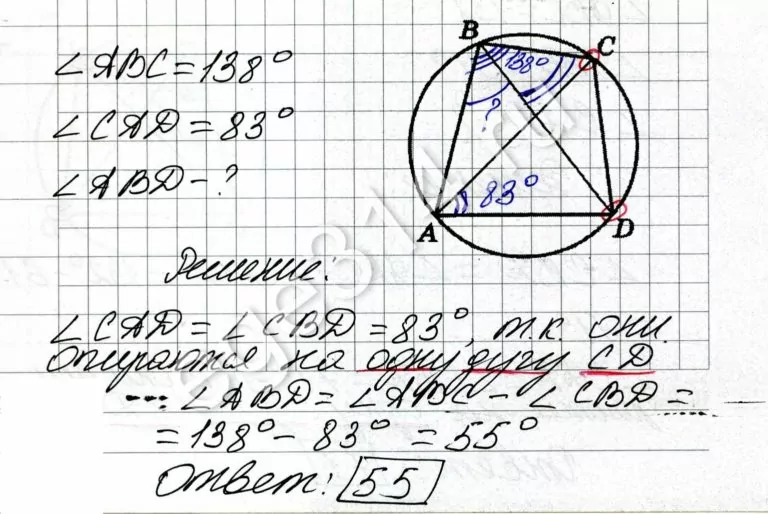 ∠ABC = 138°
∠CAD = 83°
∠ABD - ?
B
C
138°
?
83°
A
D
Решение:
∠CAD = ∠CBD = 83°, т.к. они
опираются на одну дугу CD
∠ABD = ∠ABC - ∠CBD =
= 138° - 83° = 55°
Ответ: 55